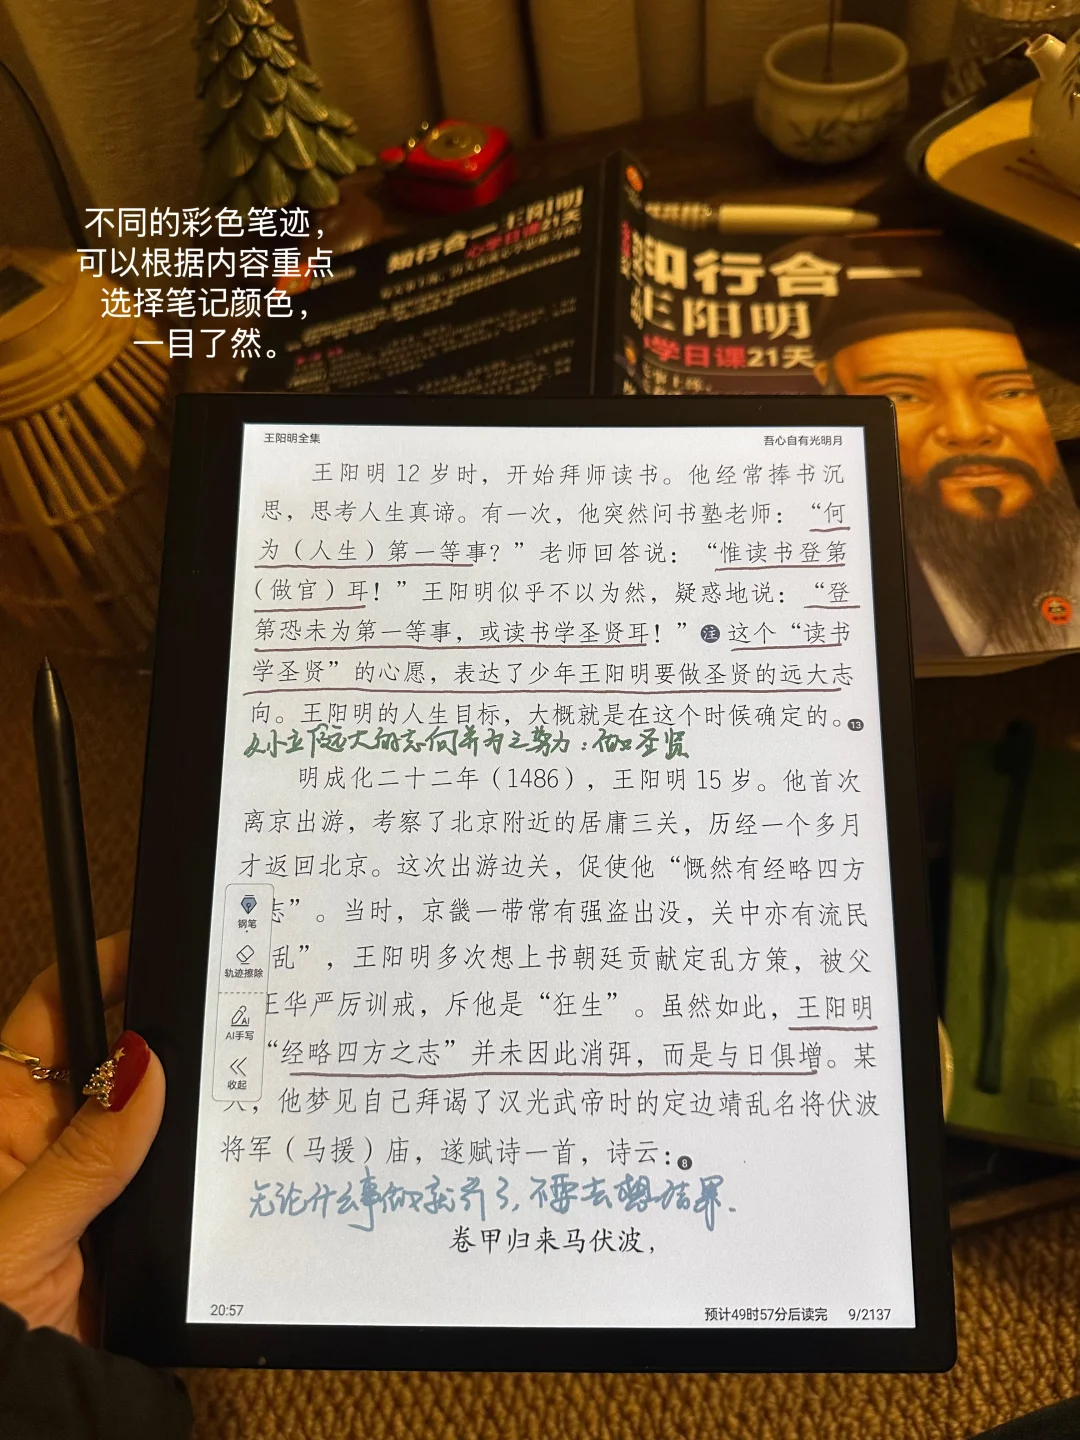 不同的彩色笔迹，
可以根据内容重点
选择笔记颜色，
一目了然。
知行合一 王阳明
心学日课21天
知行合一
王阳明
心学日课21天
王阳明全集
吾心自有光明月
王阳明12岁时，开始拜师读书。他经常捧书沉
思，思考人生真谛。有一次，他突然问书塾老师：“何
为（人生）第一等事？”老师回答说：“惟读书登第
（做官）耳！”王阳明似乎不以为然，疑惑地说：“登
第恐未为第一等事，或读书学圣贤耳！”注这个“读书
学圣贤”的心愿，表达了少年王阳明要做圣贤的远大志
向。王阳明的人生目标，大概就是在这个时候确定的。13
从小立下远大的志向并为之努力：做圣贤
明成化二十二年（1486），王阳明15岁。他首次
离京出游，考察了北京附近的居庸三关，历经一个多月
才返回北京。这次出游边关，促使他“慨然有经略四方
志”。当时，京畿一带常有强盗出没，关中亦有流民
乱”，王阳明多次想上书朝廷贡献定乱方策，被父
王华严厉训戒，斥他是“狂生”。虽然如此，王阳明
“经略四方之志”并未因此消弭，而是与日俱增。某
，他梦见自己拜谒了汉光武帝时的定边靖乱名将伏波
将军（马援）庙，遂赋诗一首，诗云：8
无论什么事做就行了，不要去想结果.
卷甲归来马伏波，
钢笔
轨迹擦除
AI手写
收起
20:57
预计49时57分后读完 9/2137